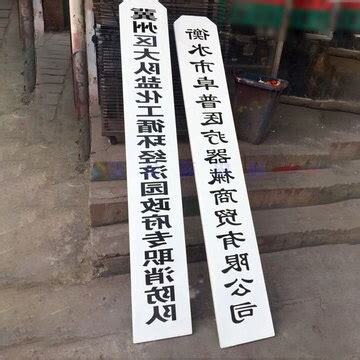 冀州区大队盐化工循环经济园政府专职消防队
衡水市卓普医疗器械商贸有限公司